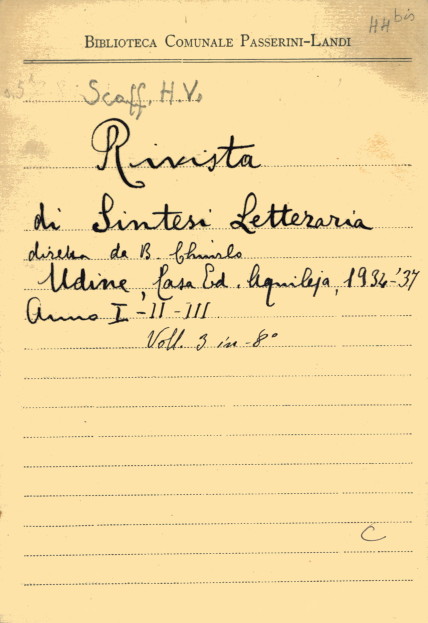 44 bis
BIBLIOTECA COMUNALE PASSERINI-LANDI
Scaff. H.V.
Rivista
di Sintesi Letteraria
diretta da B. Chiurlo
Udine, Casa Ed. Aquileja, 1934-'37
Anno I-II-III
Voll. 3 in-8°
C